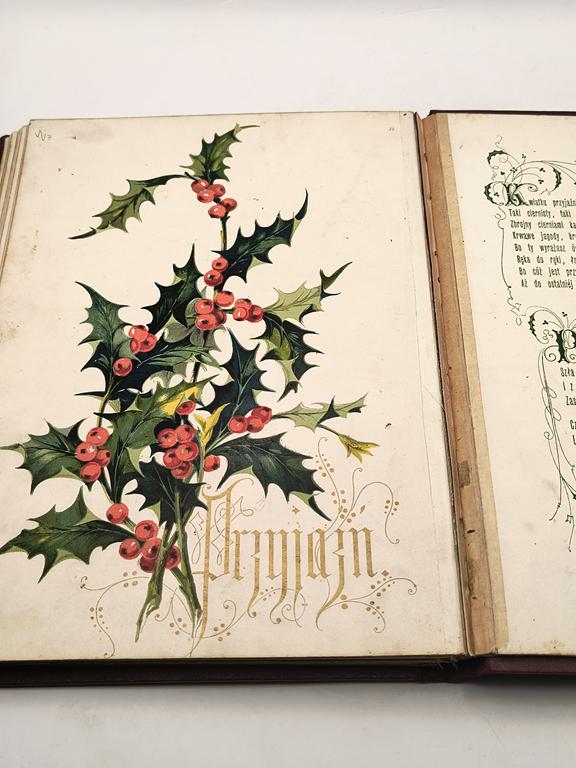 Przyjaźń.
Kwiatku przyjaźn
Taki ciernisty, taki
Zbrojny cierniami ka
Krwawe jagody, kr
Bo ty wyrażasz
Ręka do ręki,
Bo cóż jest prz
Aż do ostatniej
P
Szła
I z
Zas